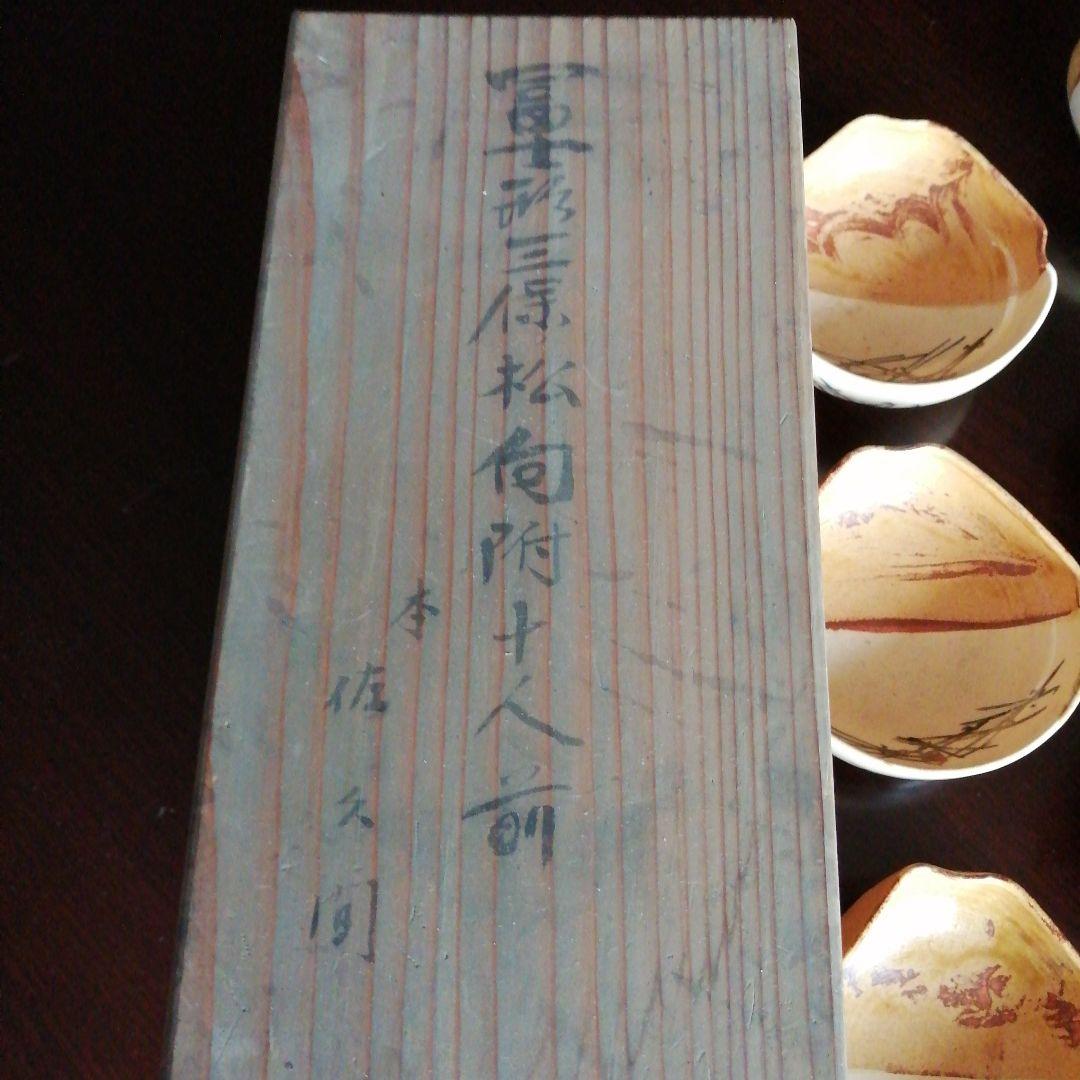 冨士形三保松向附十人前
本
佐久間